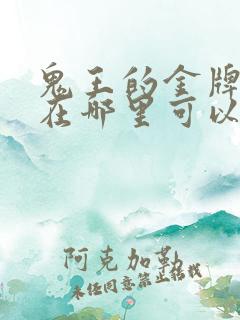 鬼王的金牌
在哪里可以
阿克加勒
未经同意禁止转载